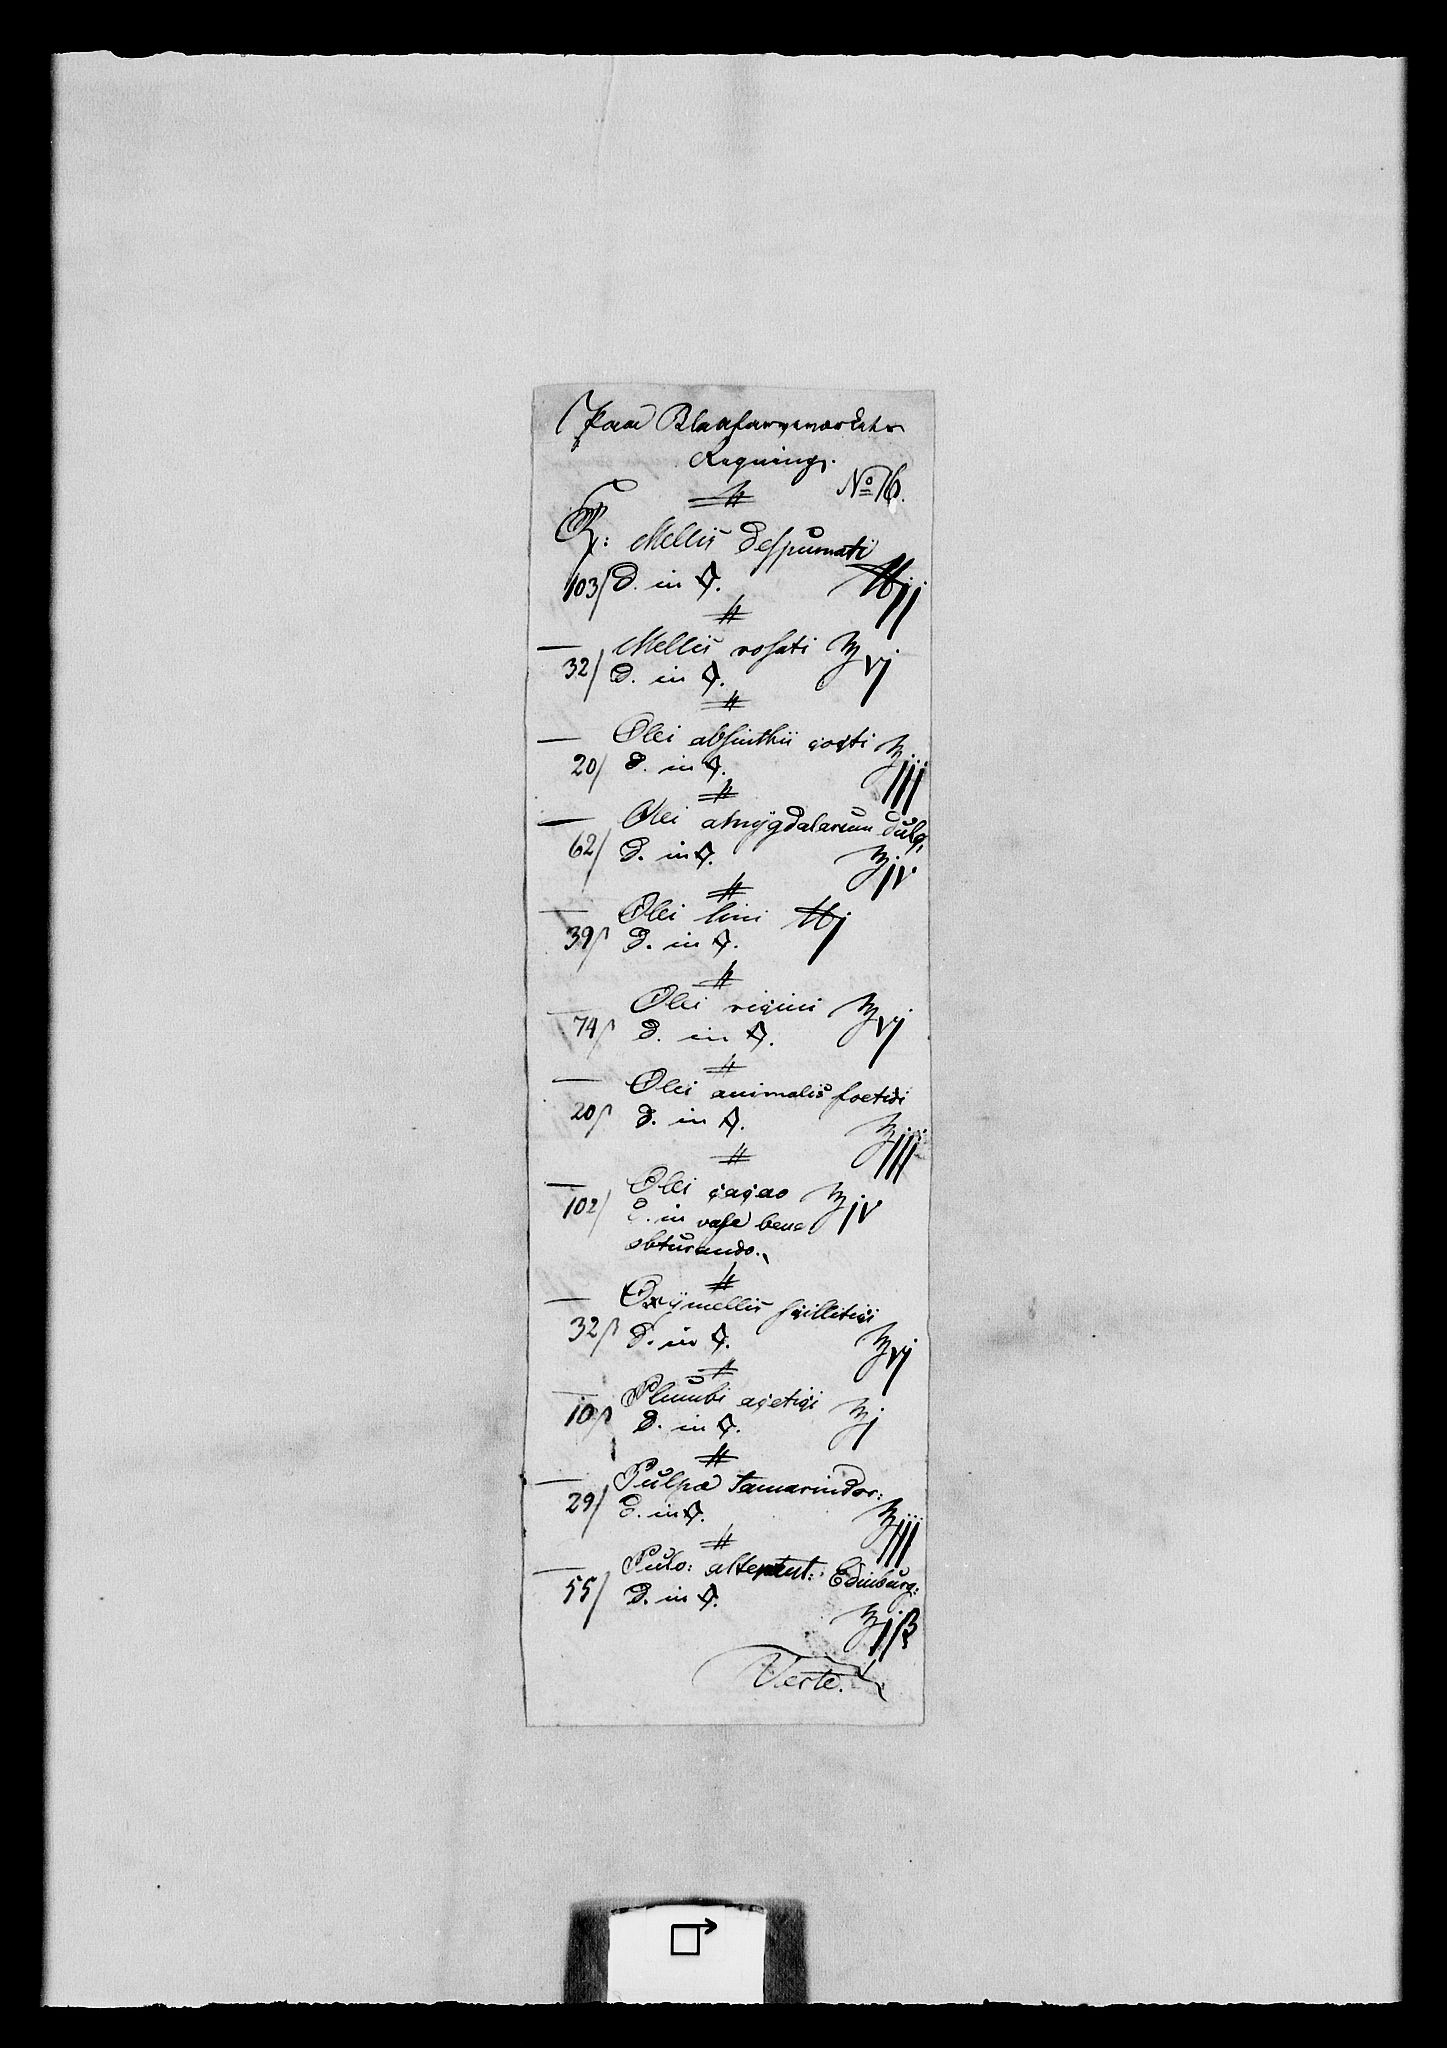 Paa Blaafarveværkets
Regning.
No 16.
#
℞: Mellis despumati
103/ D. in ◊. ℔jj
#
— Mellis rosati ℥vj
32/ D. in ◊.
#
— Olei absinthii cocti ℥jjj
20/ D. in ◊.
#
— Olei amÿgdalarum dulc,
62/ D. in ◊. ℥jv
#
— Olei lini ℔j
39/ D. in ◊.
#
— Olei ricini ℥vj
74/ D. in ◊.
#
— Olei animalis foetidi
20/ D. in ◊. ℥jjj
#
— Olei cacao ℥jv
102/ D. in vase bene
obturando.
#
— Oxÿmellis scillitici
32/ D. in ◊. ℥vj
#
— Plumbi acetici ℥j
10/ D. in ◊.
#
— Pulpæ Tamarindor:
29/ D. in ◊. ℥jjj
#
— Pulv: Edinburg:
55/ D. in ◊.
℥jß
Verte.